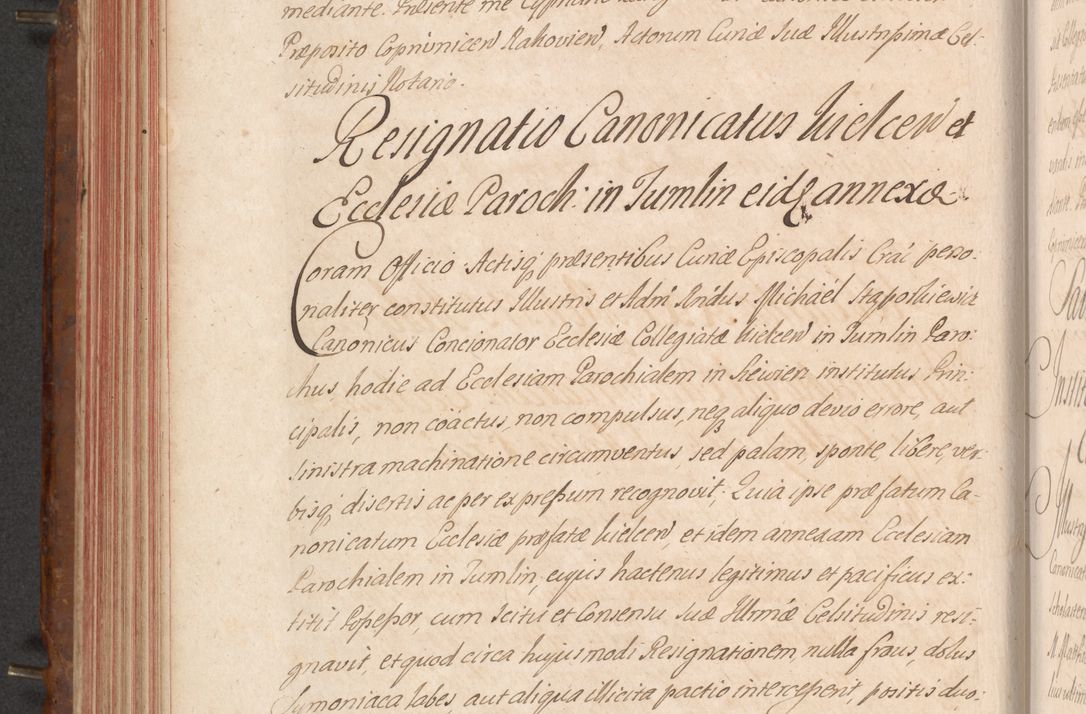 Præposito Coprivnicen Rakovien, Actorum Curiæ Suæ Illustrissimæ Cel-
situdinis Notario.
Resignatio Canonicatus Kielcen et
Ecclesiæ Paroch: in Tumlin eidq annexæ
Coram Officio Actisq præsentibus Curiæ Episcopalis Crac perso-
naliter constitutus Illustris et Adm Rndus Michaël Stąporkiewicz
Canonicus Concionator Ecclesiæ Collegiatæ Kielcen in Tumlin Paro-
chus, hodie ad Ecclesiam Parochialem in institutus Prin-
cipalis, non coactus, non compulsus, neq aliquo devio errore, aut
sinistra machinatione circumventus, sed palam, sponte, libere, ver-
bisq disertis ac per expressum recognovit; Quia ipse præfatum Ca-
nonicatum Ecclesiæ præfatæ Kielcen, et idem annexam Ecclesiam
Parochialem in Tumlin, cujus hactenus legitimus et pacificus ex-
titit Possessor, cum scitu et Consensu Suæ Illrmæ Celsitudinis resi-
gnavit, et quod circa hujusmodi Resignationem, nulla fraus, dolus
Symoniaca labes, aut aliqua illicita pactio intercesserit, positis duo-